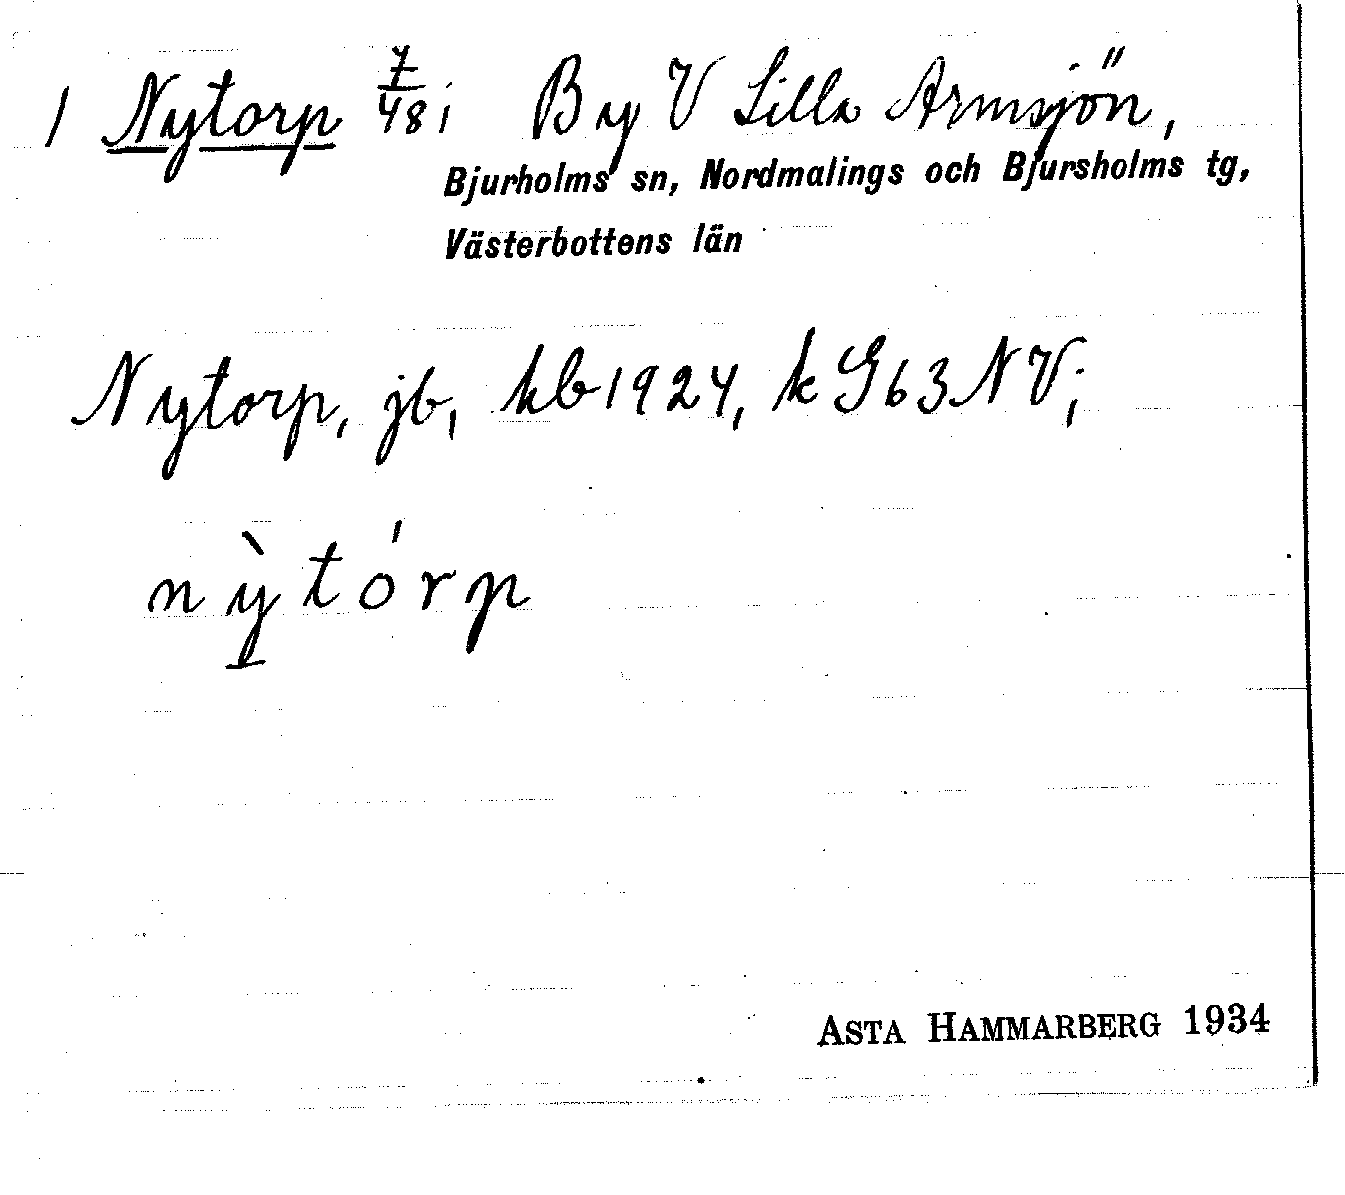 1 Nytorp 7/48 i By V Lilla Armsjön,
Bjurholms sn, Nordmalings och Bjursholms tg,
Västerbottens län
Nytorp, jb, hb 1924, k G63NV;
nỳtórp
ASTA HAMMARBERG 1934